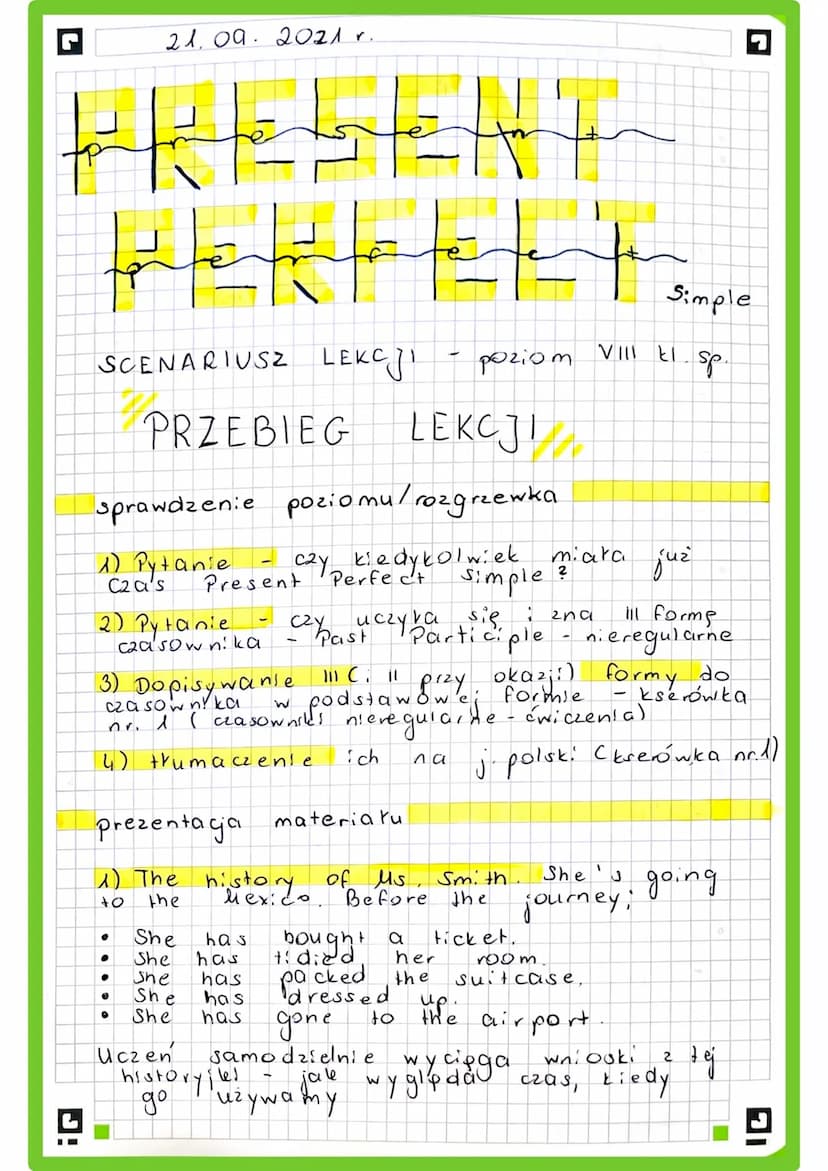 21.09.2021 r.
PRESENT
present
PERFECT
perfect
simple
SCENARIUSZ LEKCJI - poziom VIII kl. sp.
PRZEBIEG LEKCJI
sprawdzenie poziomu/rozgrzewka
1) Pytanie - czy kiedykolwiek miała już
czas Present Perfect simple?
2) Pytanie - czy uczyła się i zna III formę
czasownika - Past Participle - nieregularne
3) Dopisywanie III (i II przy okazji) formy do
czasownika w podstawowej formie - kserówka
nr. 1 (czasowniki nieregularne - ćwiczenia)
4) tłumaczenie ich na j. polski (kserówka nr.1)
prezentacja materiału
1) The history of Ms. Smith. She's going
to the Mexico. Before the journey;
• She has bought a ticket.
• She has tidied her room.
• She has packed the suitcase.
• She has dressed up.
• She has gone to the airport.
Uczeń samodzielnie wyciąga wnioski z tej
historyjki - jak wygląda czas, kiedy
go używamy